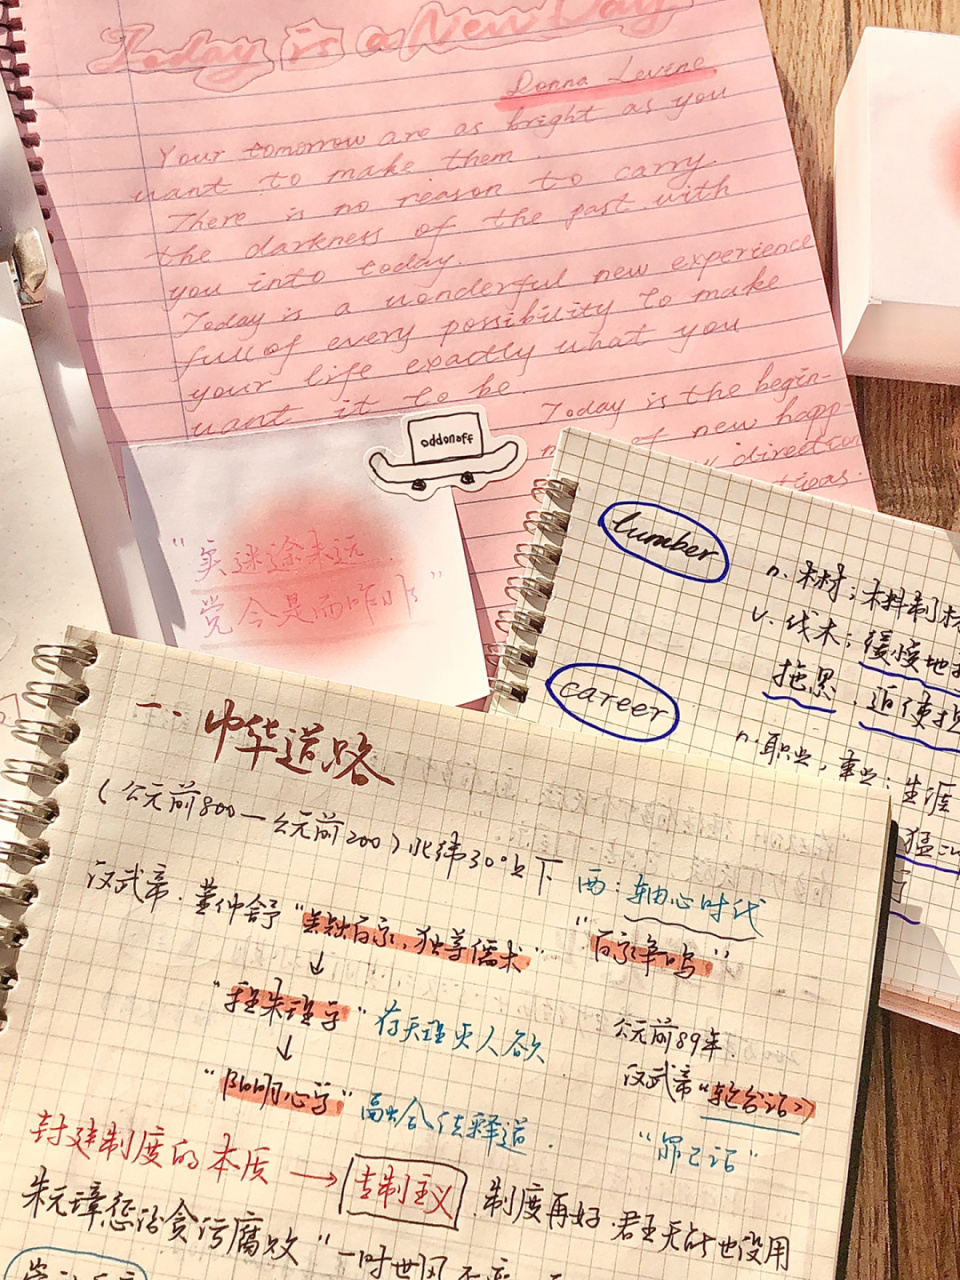 Today is a New Day
Donna Levine
Your tomorrow are as bright as you
want to make them.
There is no reason to carry
the darkness of the past with
you into today.
Today is a wonderful new experience
full of every possibility to make
your life exactly what you
want it to be.
Today is the begin-
of new happ-
direction
oddonoff
"实迷途未远
觉今是而昨非"
lumber
n. 木材；木料制材
v. 伐木；缓慢地
拖累；迫使
career
n. 职业，事业；生涯
猛
一. 中华道路
(公元前800—公元前200)北纬30°上下
西：轴心时代
汉武帝. 董仲舒"罢黜百家，独尊儒术"
"百家争鸣"
↓
"程朱理学"存天理灭人欲
↓
"阳明心学"融合儒释道.
公元前89年.
汉武帝"轮台诏"
"罪己诏"
封建制度的本质→专制主义.制度再好.君王无能也没用
朱元璋惩治贪污腐败"一时世风